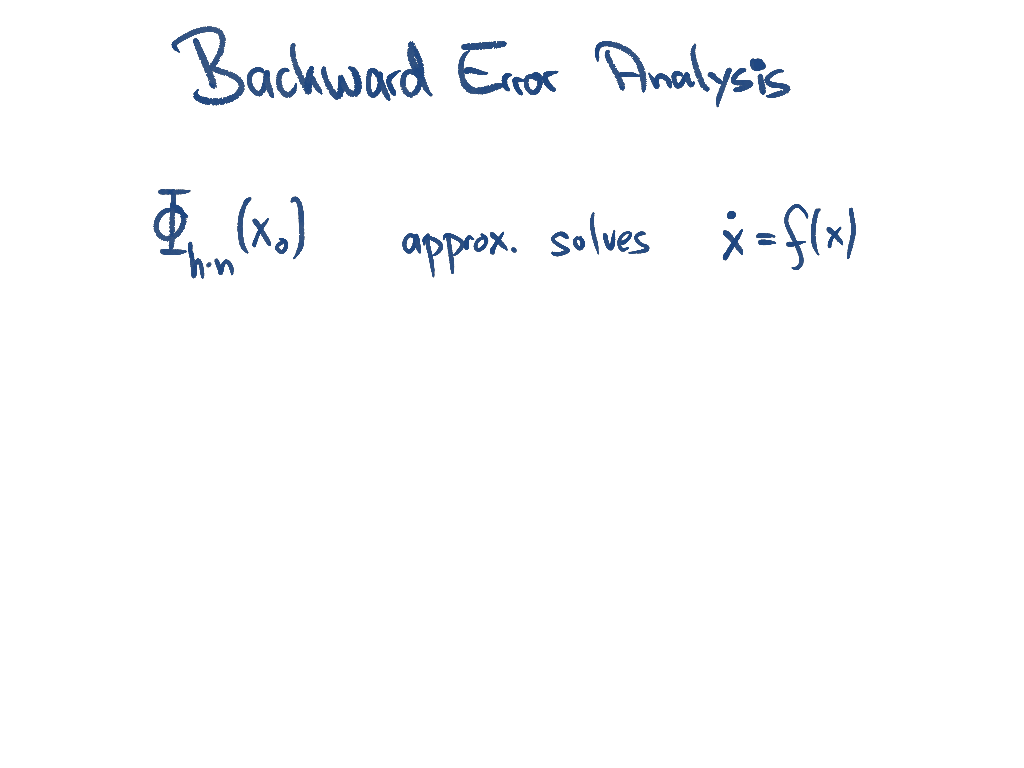 Backward Error Analysis
Φ_{h·n}(x₀) approx. solves ẋ = f(x)